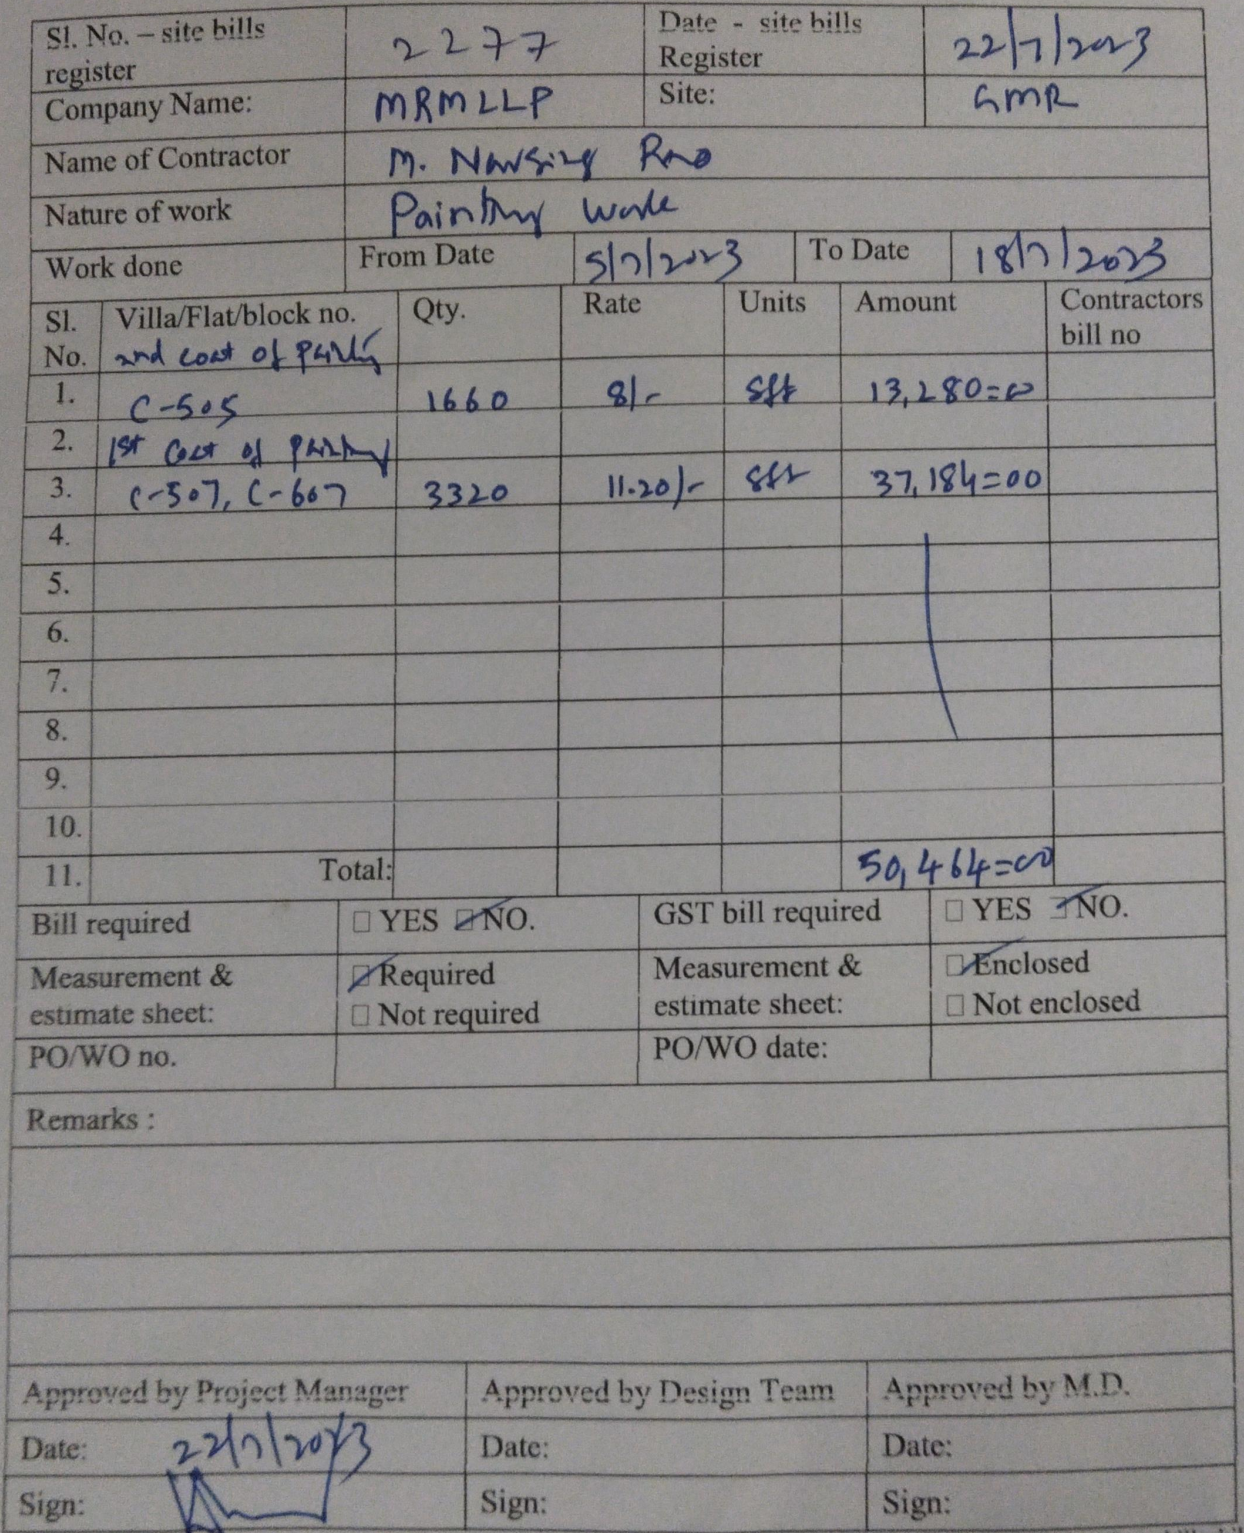 Sl. No. – site bills register 2277 Date - site bills Register 22/7/2023
Company Name: MRMLLP Site: GMR
Name of Contractor M. Narsing Rao
Nature of work Painting work
Work done From Date 5/7/2023 To Date 18/7/2023
Sl. No. Villa/Flat/block no. Qty. Rate Units Amount Contractors bill no
2nd coat of painting
1. C-505 1660 8/- sft 13,280=00
2. 1st coat of painting
3. C-507, C-607 3320 11.20/- sft 37,184=00
4.
5.
6.
7.
8.
9.
10.
11. Total: 50,464=00
Bill required □ YES □ NO. GST bill required □ YES □ NO.
Measurement & estimate sheet: □ Required □ Not required Measurement & estimate sheet: □ Enclosed □ Not enclosed
PO/WO no. PO/WO date:
Remarks :
Approved by Project Manager Approved by Design Team Approved by M.D.
Date: 22/7/2023 Date: Date:
Sign: Sign: Sign: